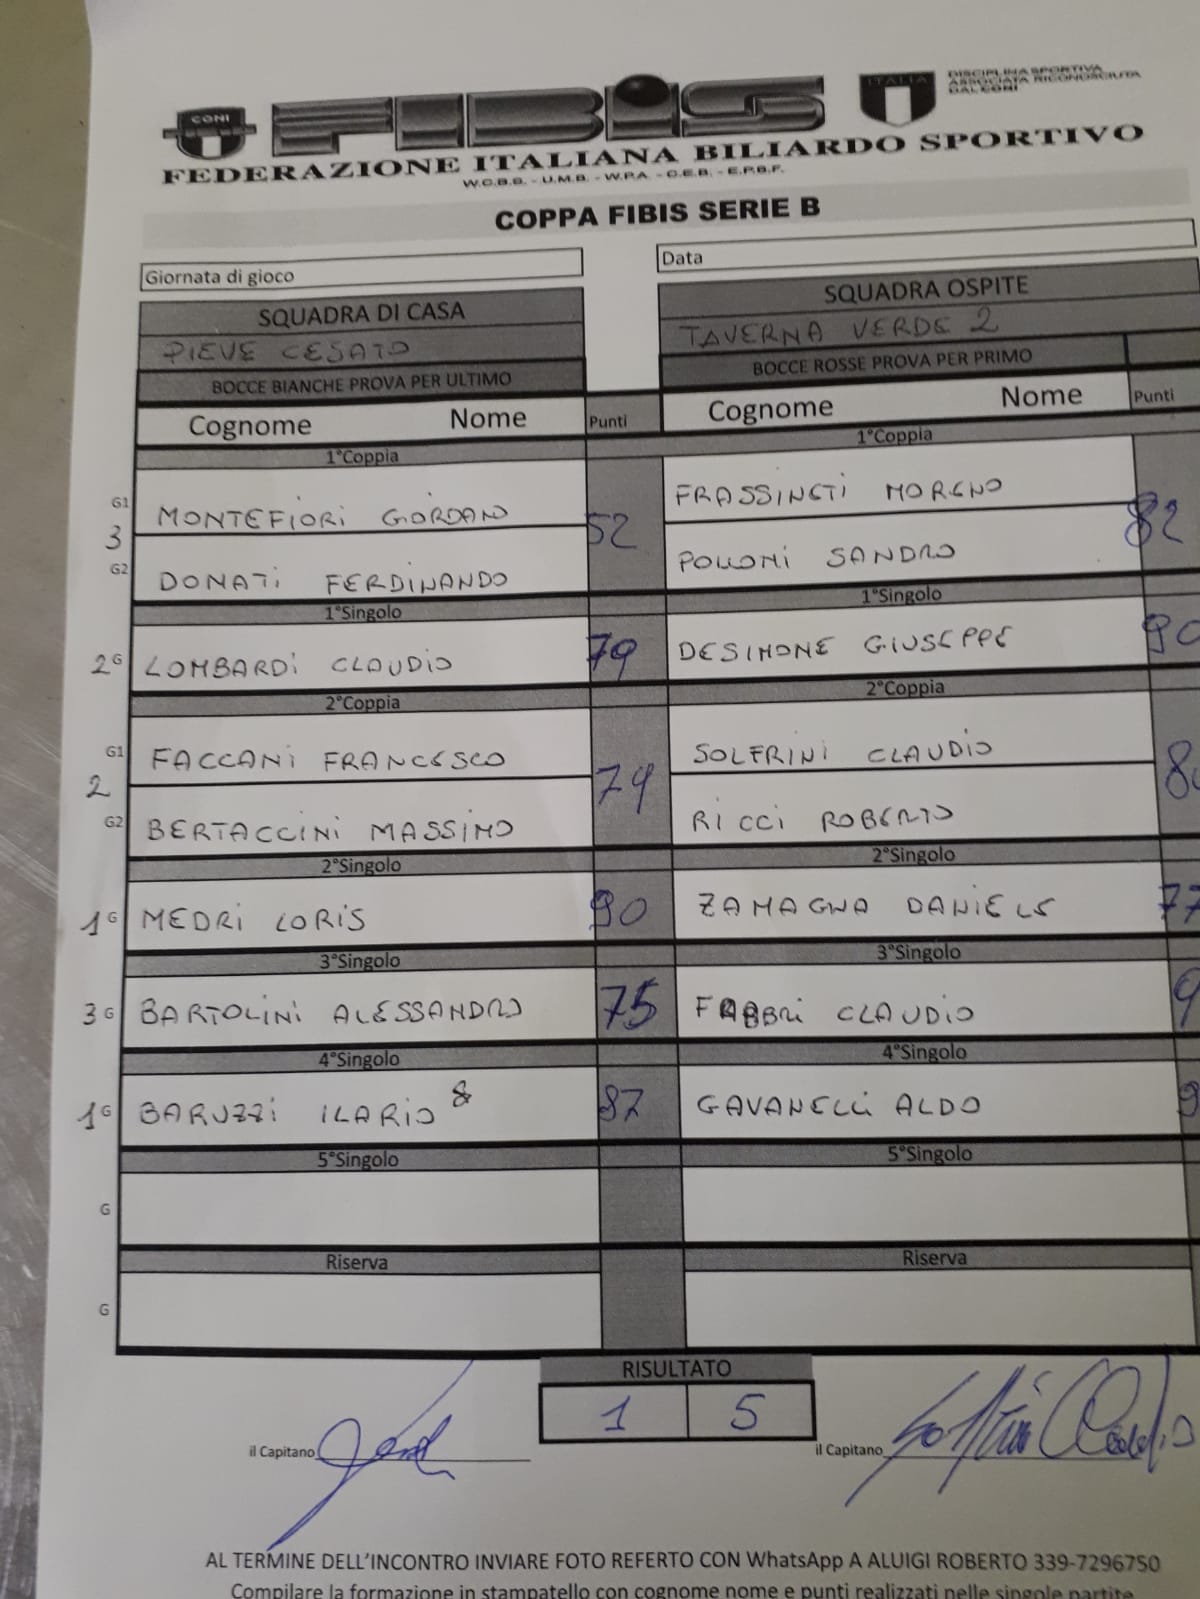 CONI FIBIS ITALIA DISCIPLINA SPORTIVA
ASSOCIATA RICONOSCIUTA
DAL CONI
FEDERAZIONE ITALIANA BILIARDO SPORTIVO
W.C.B.S. - U.M.B. - W.P.A. - C.E.B. - E.P.B.F.
COPPA FIBIS SERIE B
Giornata di gioco Data
SQUADRA DI CASA SQUADRA OSPITE
PIEVE CESATO TAVERNA VERDE 2
BOCCE BIANCHE PROVA PER ULTIMO BOCCE ROSSE PROVA PER PRIMO
Cognome Nome Punti Cognome Nome Punti
1°Coppia 1°Coppia
G1 MONTEFIORI GIORDANO FRASSINETI MORENO
3 52 82
G2 DONATI FERDINANDO POLLONI SANDRO
1°Singolo 1°Singolo
2 G LOMBARDI CLAUDIO 79 DESIMONE GIUSEPPE 90
2°Coppia 2°Coppia
G1 FACCANI FRANCESCO SOLFRINI CLAUDIO
2 79 8
G2 BERTACCINI MASSIMO RICCI ROBERTO
2°Singolo 2°Singolo
1 G MEDRI LORIS 90 ZAMAGNA DANIELE 77
3°Singolo 3°Singolo
3 G BARTOLINI ALESSANDRO 75 FABBRI CLAUDIO 9
4°Singolo 4°Singolo
1 G BARUZZI ILARIO 87 GAVANELLI ALDO 9
5°Singolo 5°Singolo
G
Riserva Riserva
G
RISULTATO
1 5
il Capitano il Capitano Solfrini Claudio
AL TERMINE DELL'INCONTRO INVIARE FOTO REFERTO CON WhatsApp A ALUIGI ROBERTO 339-7296750
Compilare la formazione in stampatello con cognome nome e punti realizzati nelle singole partite